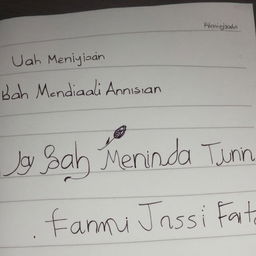 Uah Meniyiaan
Bah Mendiaali Annisian
Jg Bah Meninda Tunin
. Fanmu Jnssi Fart